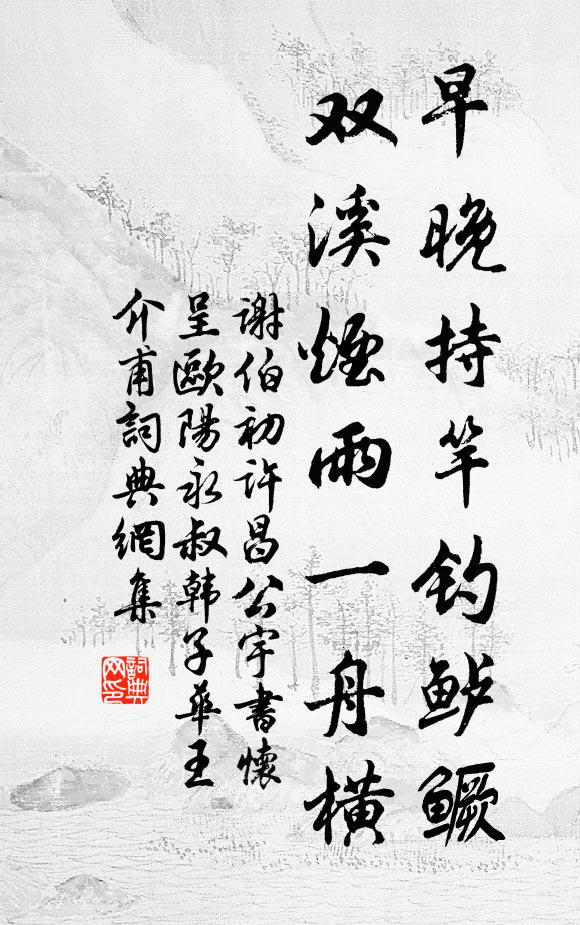 早晚持竿钓鲈鳜
双溪烟雨一舟横
谢伯初许昌公宇書懷
呈歐陽永叔韩子華王
介甫詞典網集
詞典
网印